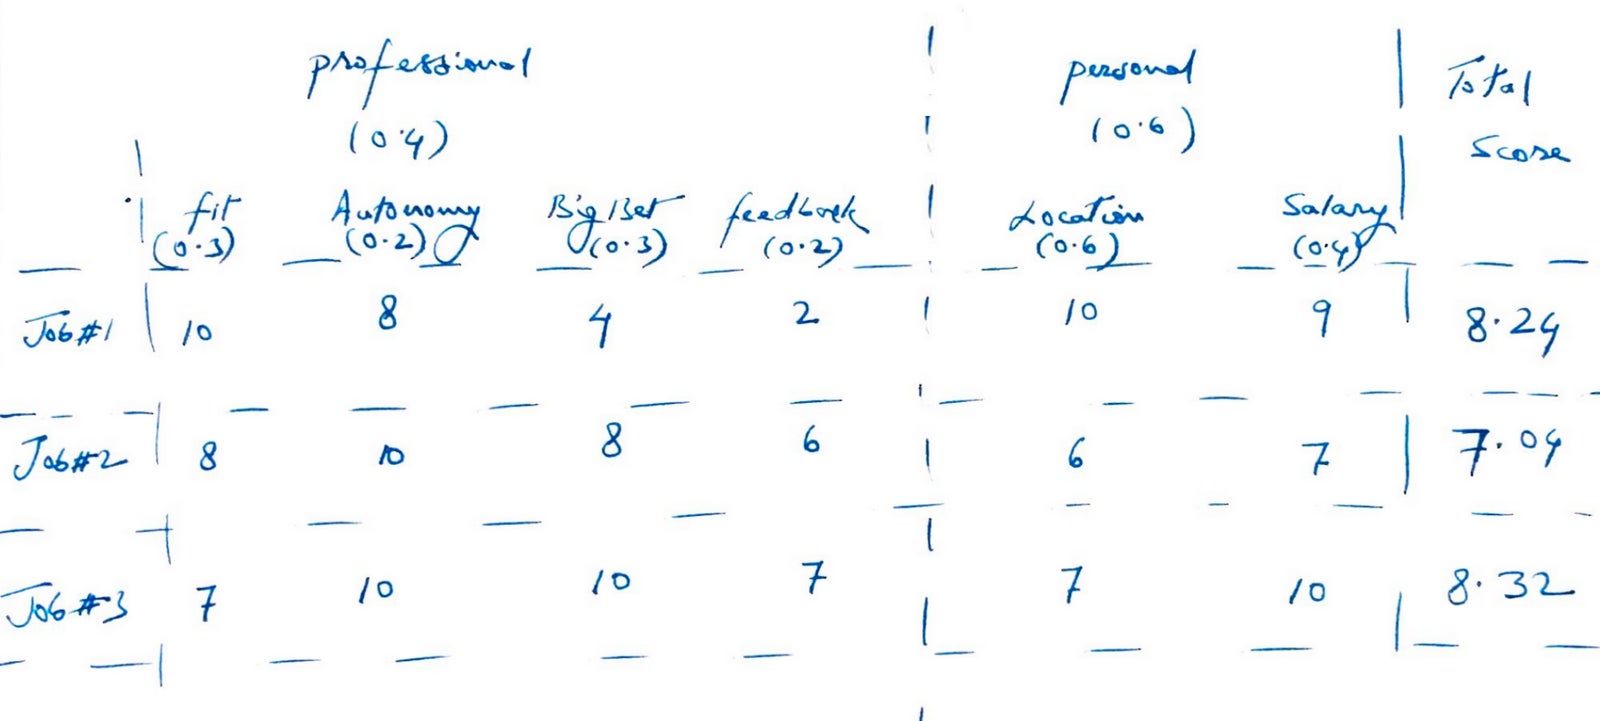 professional personal Total
(0.4) (0.6) Score
fit Autonomy Big Bet feedback Location Salary
(0.3) (0.2) (0.3) (0.2) (0.6) (0.4)
Job#1 10 8 4 2 10 9 8.24
Job#2 8 10 8 6 6 7 7.04
Job#3 7 10 10 7 7 10 8.32